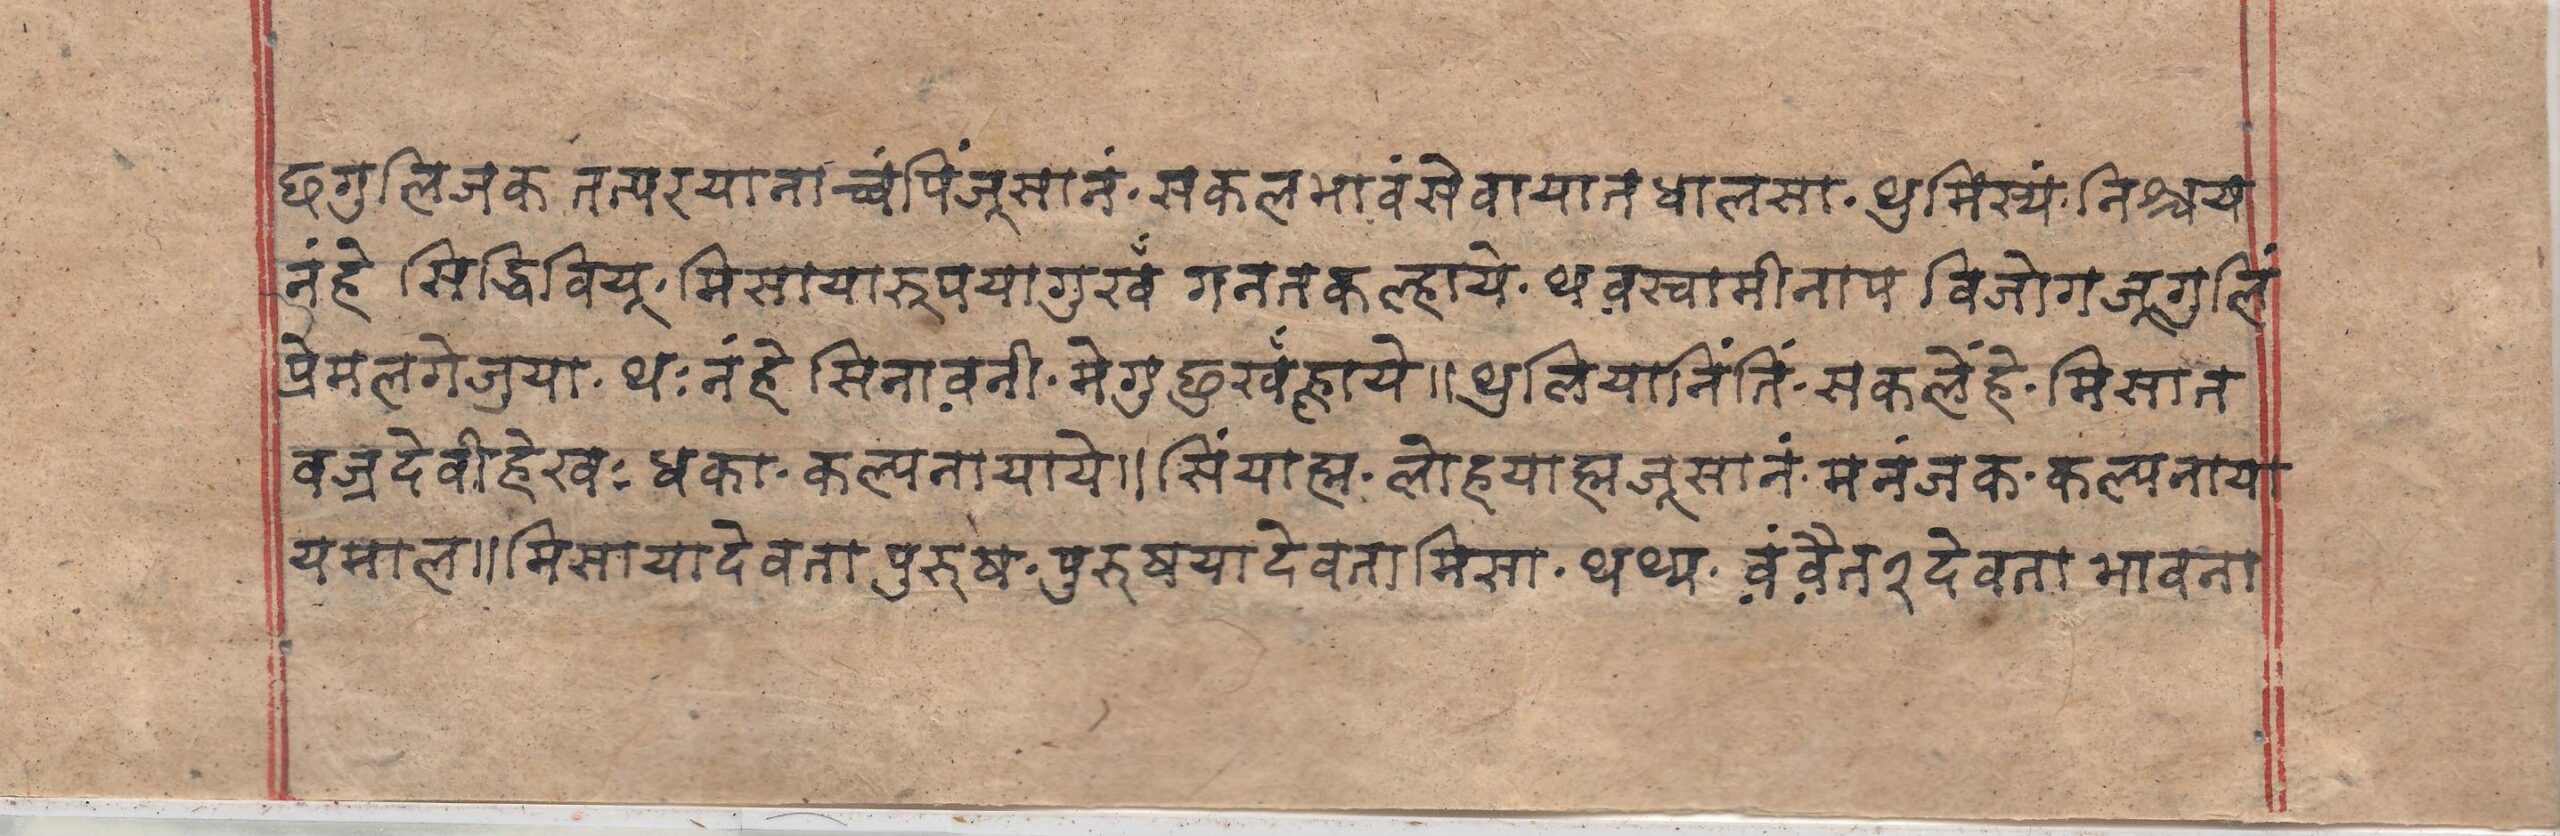 छगुलिजक तत्परयानाच्वंपिंजूसानं· सकलभावंसेवायातधालसा· थुमिस्यं· निश्चय
नंहे सिद्धिवियू· मिसायारूपयागुरवँ गनतकल्हाये· थव़स्वामीनाप विजोगजूगुलिं
प्रेमलगेजुया· थः नंहे सिनाव़नी· मेगुछुखँह्लाये॥ थुलियानिंतिं· सकलेंहे· मिसात
वज्रदेवीहेखः धका· कल्पनायाये॥ सिंयाह्म· लोहयाह्मजूसानं· मनंजक· कल्पनाया
यमाल॥ मिसायादेवता पुरुष· पुरुषयादेवतामिसा· थथ्य· व़ंव़ैत२देवता भावना